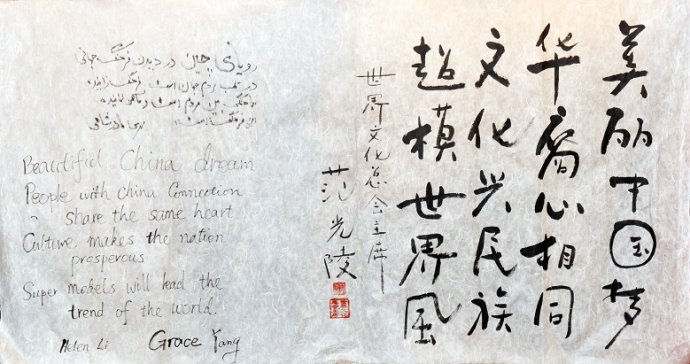 美丽中国梦
华裔心相同
文化兴民族
超模世界風
世界文化总会主席
范光陵
رویای چین در دیدن فرهنگ جهانی
Beautiful China dream
People with china Connection
share the same heart
Culture makes the nation
prosperous
Super models will lead the
trend of the world.
Helen Li Grace Yang